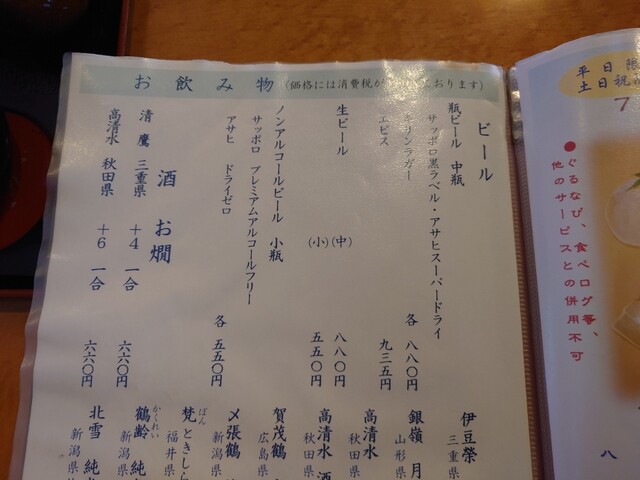 お飲み物（価格には消費税が
おります）
ビール
瓶ビール 中瓶
サッポロ黒ラベル・アサヒスーパードライ
キリンラガー
各 八八〇円
エビス
九三五円
生ビール
（中） 八八〇円
（小） 五五〇円
ノンアルコールビール 小瓶
サッポロ プレミアムアルコールフリー
アサヒ ドライゼロ
各 五五〇円
酒 お燗
清鷹 三重県 ＋4 一合 六六〇円
高清水 秋田県 ＋6 一合 六六〇円
伊豆榮
三重県
銀嶺 月
山形県
高清水
秋田県
高清水 酒
秋田県
賀茂鶴
広島県
〆張鶴
新潟県
梵 ときしら
ぼん
福井県
鶴齢 純
かくれい
新潟県
北雪 純
新潟県
平日限
土日祝
7
●ぐるなび、食べログ等、
他のサービスとの併用不可
八